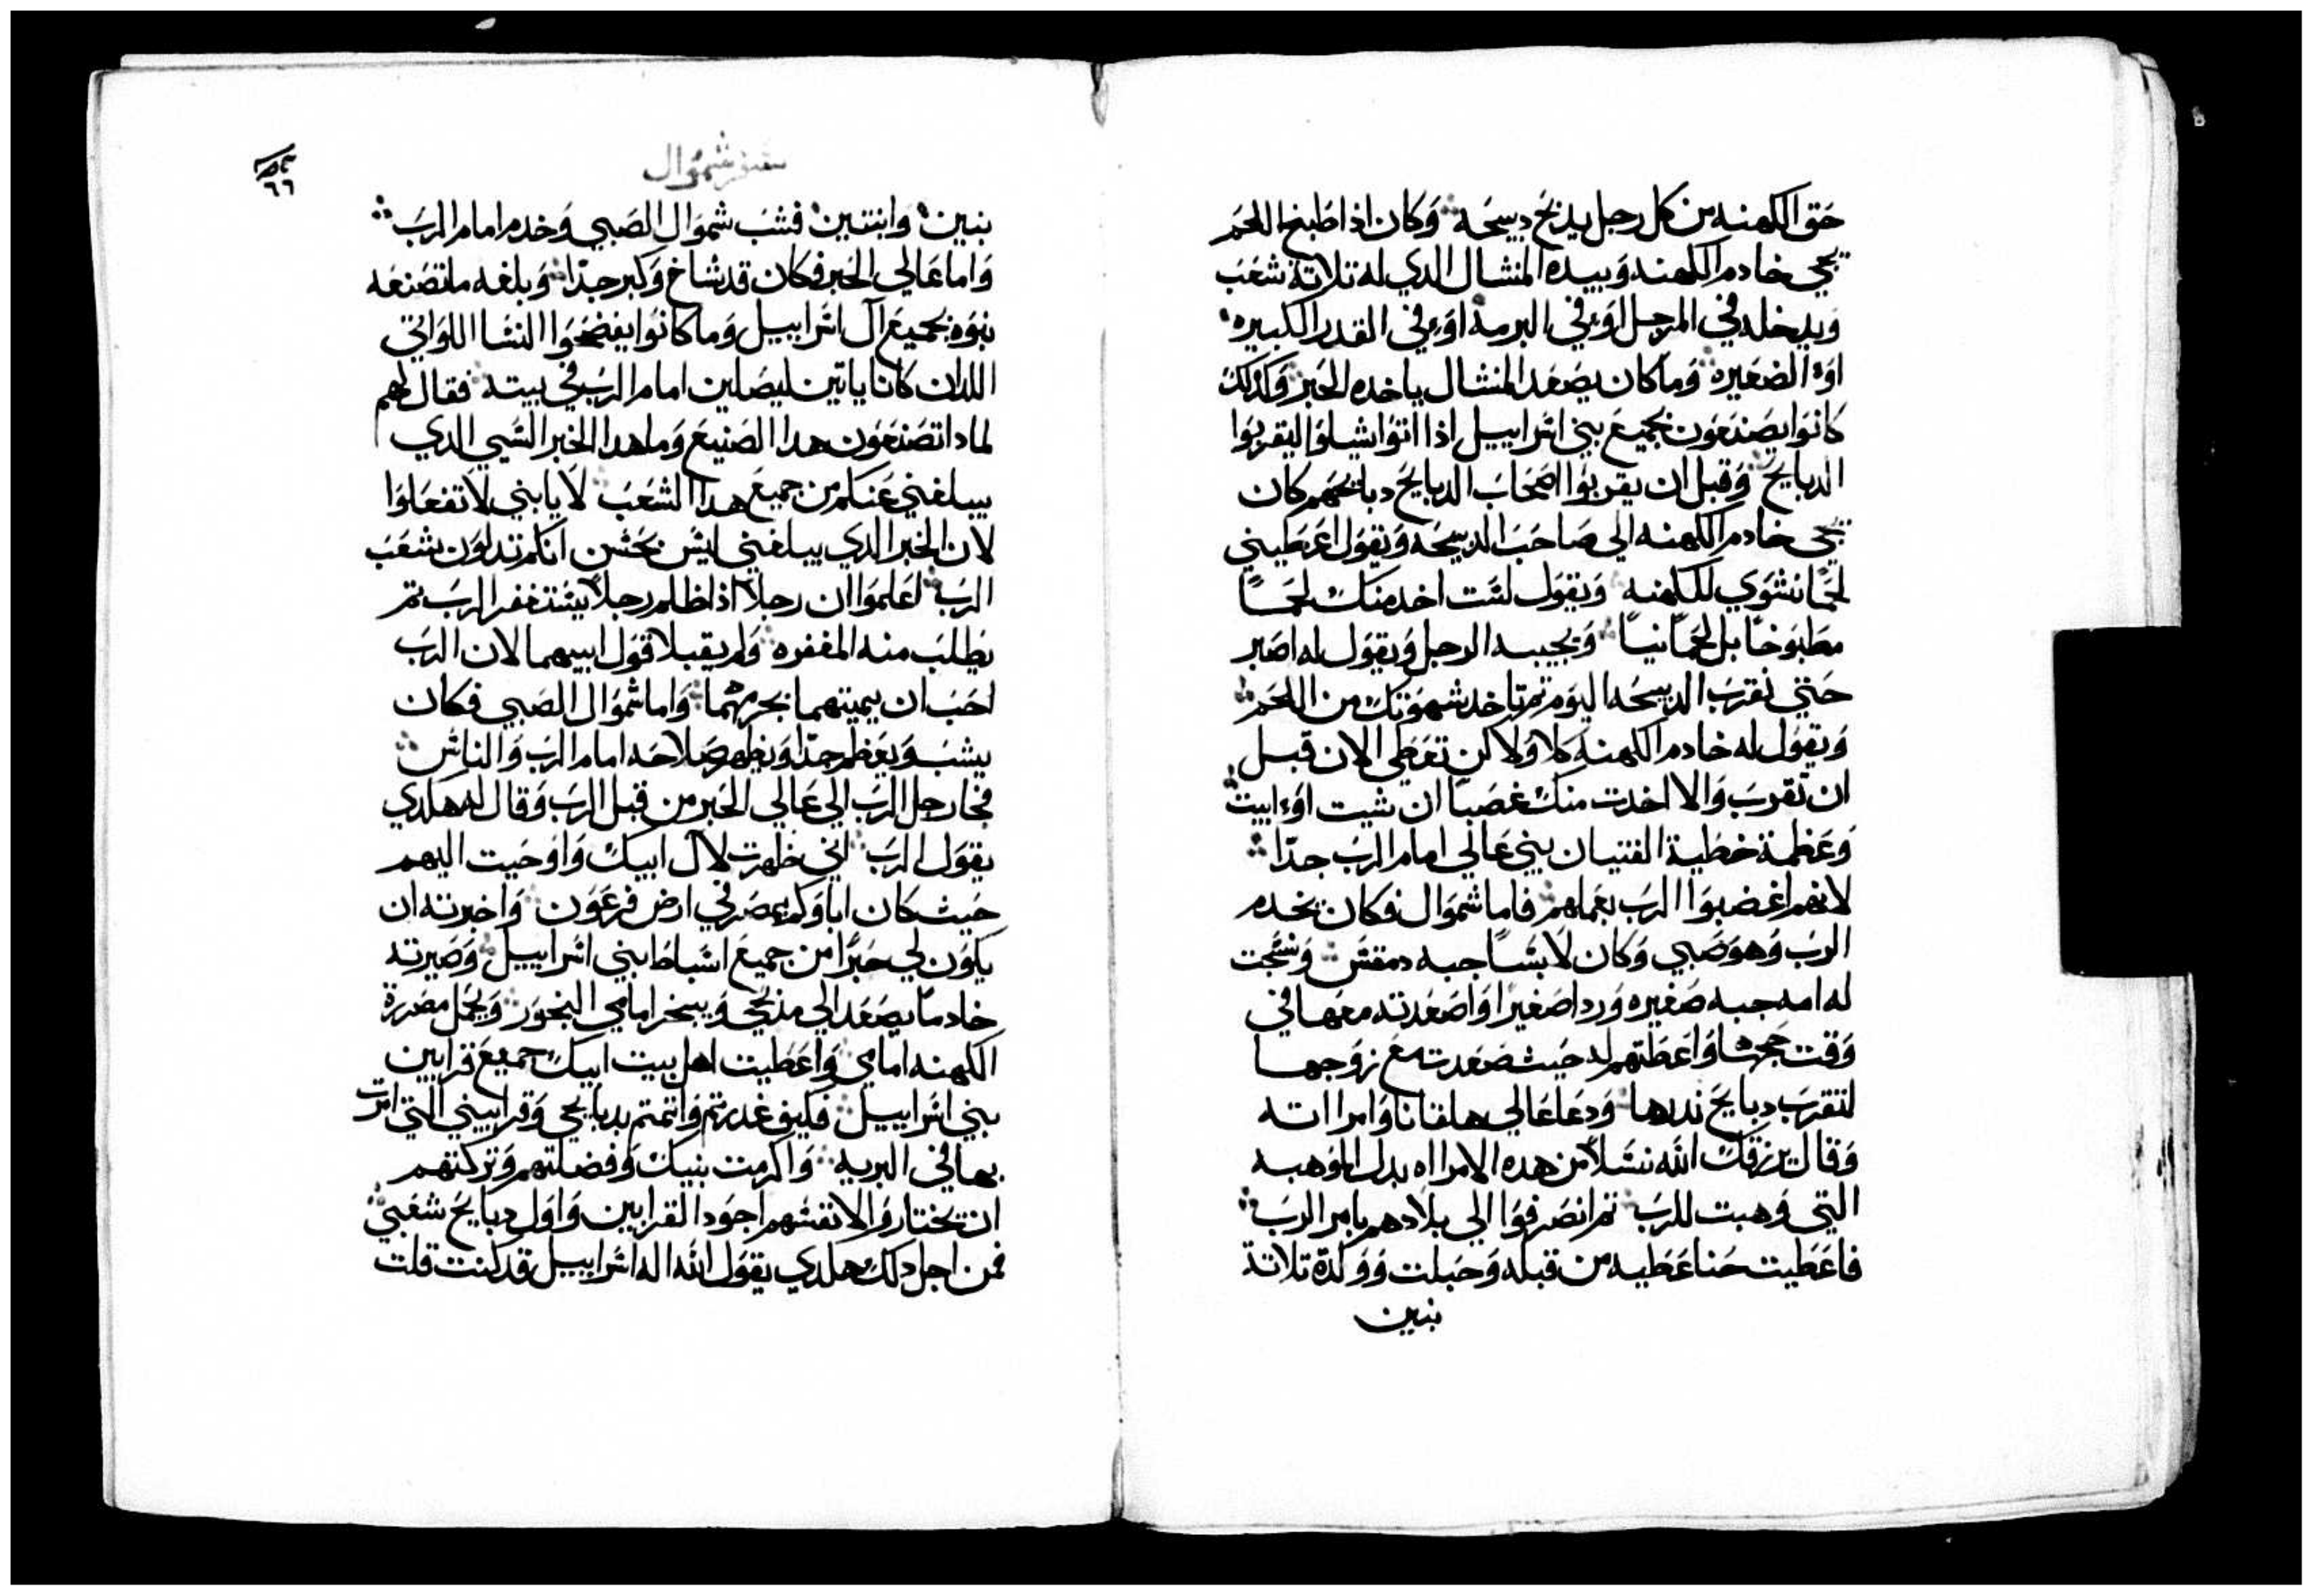 حق الكهنه من كل رجل يدبح دبيحه وكان اذا طبخ اللحم
يجي خادم الكهنه وبيده المنشال الدي له تلاتة شعب
ويدخله في المرجل اوء في البرمة اوء في القدر الكبيره
اوء الصغيره وما كان يصعد المنشال ياخده الحبر وكدلك
كانوا يصنعون بجميع بني اسراييل ادا اتوا شيلوا ليقربوا
الدبايح وقبل ان يقربوا اصحاب الدبايح دبايحهم كان
يجي خادم الكهنه الي صاحب الدبيحه ويقول اعطيني
لحمًا نشوي للكهنه ويقول لست اخد منك لحمًا
مطبوخًا بل لحمًا نيًا ويجيبه الرجل ويقول له اصبر
حتي نقرب الدبيحه اليوم تم تاخد شهوتك من اللحم
ويقول له خادم الكهنه كلا ولاكن تعطي الان قبل
ان تقرب والا اخدت منك غصبًا ان شيت اوء ابيت
وعظمة خطية الفتيان بني عالي امام الرب جدًا
لانهم اغضبوا الرب بعملهم فاما شموال فكان يخدم
الرب وهو صبي وكان لابسًا جبه دمقس ونسجت
له امه جبه صغيره وردا صغيرا واصعدته معها في
وقت حجها واعطتهم له حيث صعدت مع زوجها
لتقرب دبايح ندرها ودعا عالي هلقانا وامراته
وقال يرزقك الله نسلا من هده الامراه بدل الموهبه
التي وهبت للرب تم انصرفوا الي بلادهم بامر الرب
فاعطيت حنا عطيه من قبله وحبلت وولدة تلاتة
بنين
سفر شموال
٦٦
بنين وابنتين فشب شموال الصبي وخدم امام الرب
واما عالي الحبر فكان قد شاخ وكبر جدًا وبلغه ما تصنعه
بنوه بجميع آل اسراييل وما كانوا يفضحوا النسا اللواتي
اللدان كانا ياتين ليصلين امام الرب في بيته فقال لهم
لمادا تصنعون هدا الصنيع وما هدا الخبر السي الدي
يبلغني عنكم من جميع هدا الشعب لا يا بني لا تفعلوا
لان الخبر الدي يبلغني ليس بحسن انكم تدلون شعب
الرب اعلموا ان رجلا ادا ظلم رجلا يستغفر الرب تم
يطلب منه المغفره ولم يقبلا قول ابيهما لان الرب
احب ان يميتهما بجرمهما واما شموال الصبي فكان
يشب ويعظم جدا ويظهر صلاحه امام الرب والناس
فجا رجل الرب الي عالي الحبر من قبل الرب وقال له هكدي
يقول الرب اني ظهرت لآل ابيك واوحيت اليهم
حيث كان اباوكم بمصر في ارض فرعون واخبرته ان
يكون لي حبرًا من جميع اسباط بني اسراييل وصيرته
خادمًا يصعد الي مدبحي ويبخر امامي البخور ويحمل مصررة
الكهنه امامي واعطيت اهل بيت ابيك جميع قرابين
بني اسراييل فكيف غدرتم واتمتم بدبايحي وقرابيني التي امرت
بها في البريه واكرمت بنيك وفضلتهم وتركتهم
ان يختاروا لانفسهم اجود القرابين واول دبايح شعبي
فمن اجل دلك هكدي يقول الله اله اسراييل قد كنت قلت